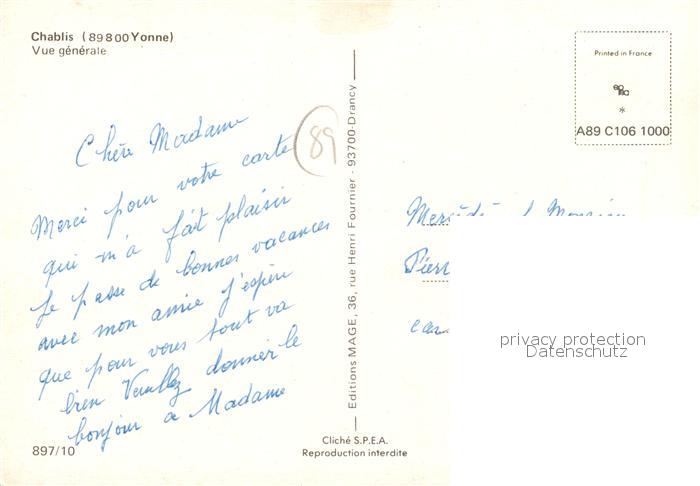 Chablis (89800 Yonne)
Vue générale
Chère Madame
Merci pour votre carte
qui m'a fait plaisir
Je passe de bonnes vacances
avec mon amie j'espère
que pour vous tout va
bien Veuillez donner le
bonjour a Madame
897/10
89
Editions MAGE, 36, rue Henri Fournier - 93700-Drancy
Cliché S.P.E.A.
Reproduction interdite
Printed in France
*
A89 C106 1000
privacy protection
Datenschutz